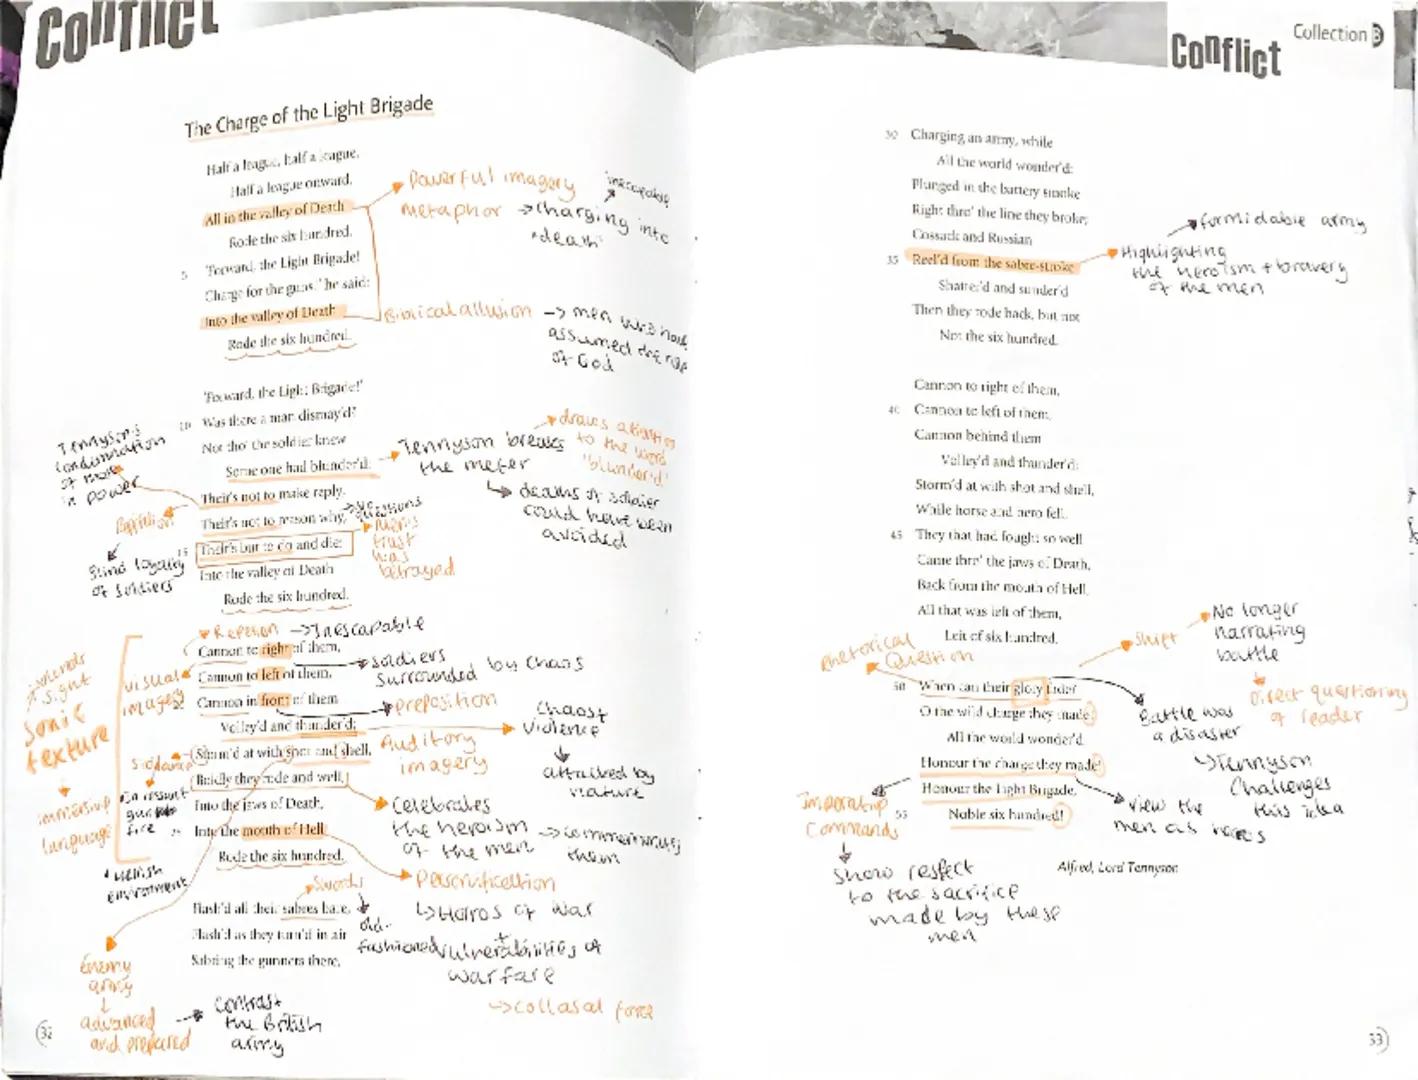 Conflict
The Charge of the Light Brigade
Half a league, half a league,
Half a league onward,
All in the valley of Death
Rode the six hundred.
5 'Forward, the Light Brigade!
Charge for the guns!' he said:
Into the valley of Death
Rode the six hundred.
'Forward, the Light Brigade!'
10 Was there a man dismay'd?
Not tho' the soldier knew
Some one had blunder'd:
Their's not to make reply,
Their's not to reason why,
15 Their's but to do and die:
Into the valley of Death
Rode the six hundred.
Cannon to right of them,
Cannon to left of them,
Cannon in front of them
Volley'd and thunder'd;
Storm'd at with shot and shell,
Boldly they rode and well,
Into the jaws of Death,
25 Into the mouth of Hell
Rode the six hundred.
Flash'd all their sabres bare,
Flash'd as they turn'd in air
Sabring the gunners there,
32
Powerful imagery
metaphor → charging into
"death"
inescapable
Biblical allusion → men who have
assumed the role
of God
Tennyson's
condemnation
of men
in power
Tennyson breaks
the meter
draws attention
to the word
'blunder'd'
deaths of soldier
could have been
avoided
Blind loyalty
of soldiers
questions
Men's
trust
was
betrayed
→ Inescapable
soldiers
surrounded by chaos
preposition
visual
imagery
sonic
texture
immersive
language
Auditory
imagery
Chaos +
violence
attacked by
nature
gun
fire
Celebrates
the heroism
of the men
→ commemorating
them
Hellish
environment
Personification
Horrors of war
+
vulnerabilities of
warfare
→ collasal force
Swords
old-
fashioned
Enemy
army
advanced
and prepared
→ contrast
the British
army
Conflict
Collection 3
30 Charging an army, while
All the world wonder'd:
Plunged in the battery smoke
Right thro' the line they broke;
Cossack and Russian
35 Reel'd from the sabre-stroke
Shatter'd and sunder'd
Then they rode back, but not
Not the six hundred.
Cannon to right of them,
40 Cannon to left of them,
Cannon behind them
Volley'd and thunder'd;
Storm'd at with shot and shell,
While horse and hero fell,
45 They that had fought so well
Came thro' the jaws of Death,
Back from the mouth of Hell,
All that was left of them,
Left of six hundred.
50 When can their glory fade?
O the wild charge they made!
All the world wonder'd.
Honour the charge they made!
Honour the Light Brigade,
55 Noble six hundred!
Alfred, Lord Tennyson
33
formidable army
Highlighting
the heroism + bravery
of the men
Rhetorical
Question
Shift
No longer
narrating
battle
Direct questioning
of reader
Battle was
a disaster
Tennyson
Challenges
this idea
view the
men as heroes
Commands
Show respect
to the sacrifice
made by these
men